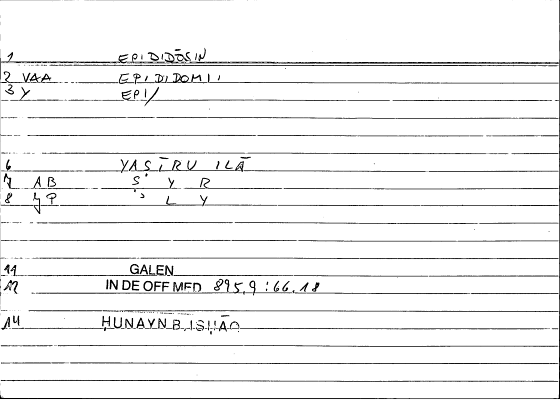 1 EPIDIDŌSIN
2 VAA EPIDIDOMII
3 Y EPI/
6 YAṢĪRU ILĀ
7 AB Ṣ Y R
8 JP ʾ L Y
11 GALEN
12 IN DE OFF MED 895,9 : 66.18
14 ḤUNAYN B. ISḤĀQ